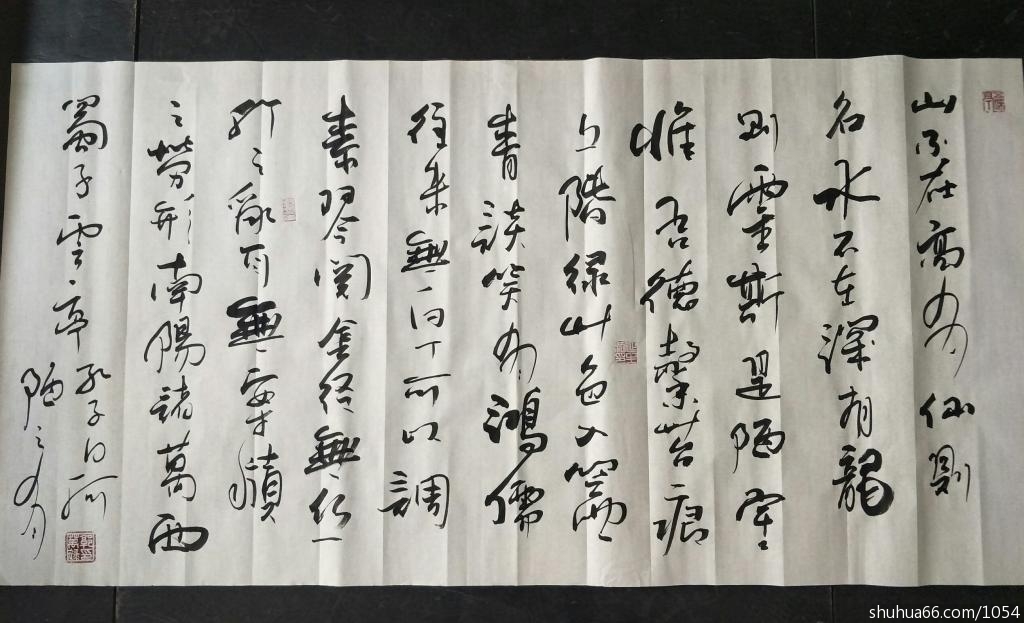 山不在高有仙則
名水不在深有龍
則靈斯是陋室
惟吾德馨苔痕
上階绿艸色入
青談笑有鴻儒
往来無白丁可以調
素琴閱金经無丝
竹之亂耳無案牘
之勞形南陽諸葛西
蜀子雲亭孔子曰何
陋之有
shuhua66.com/1054